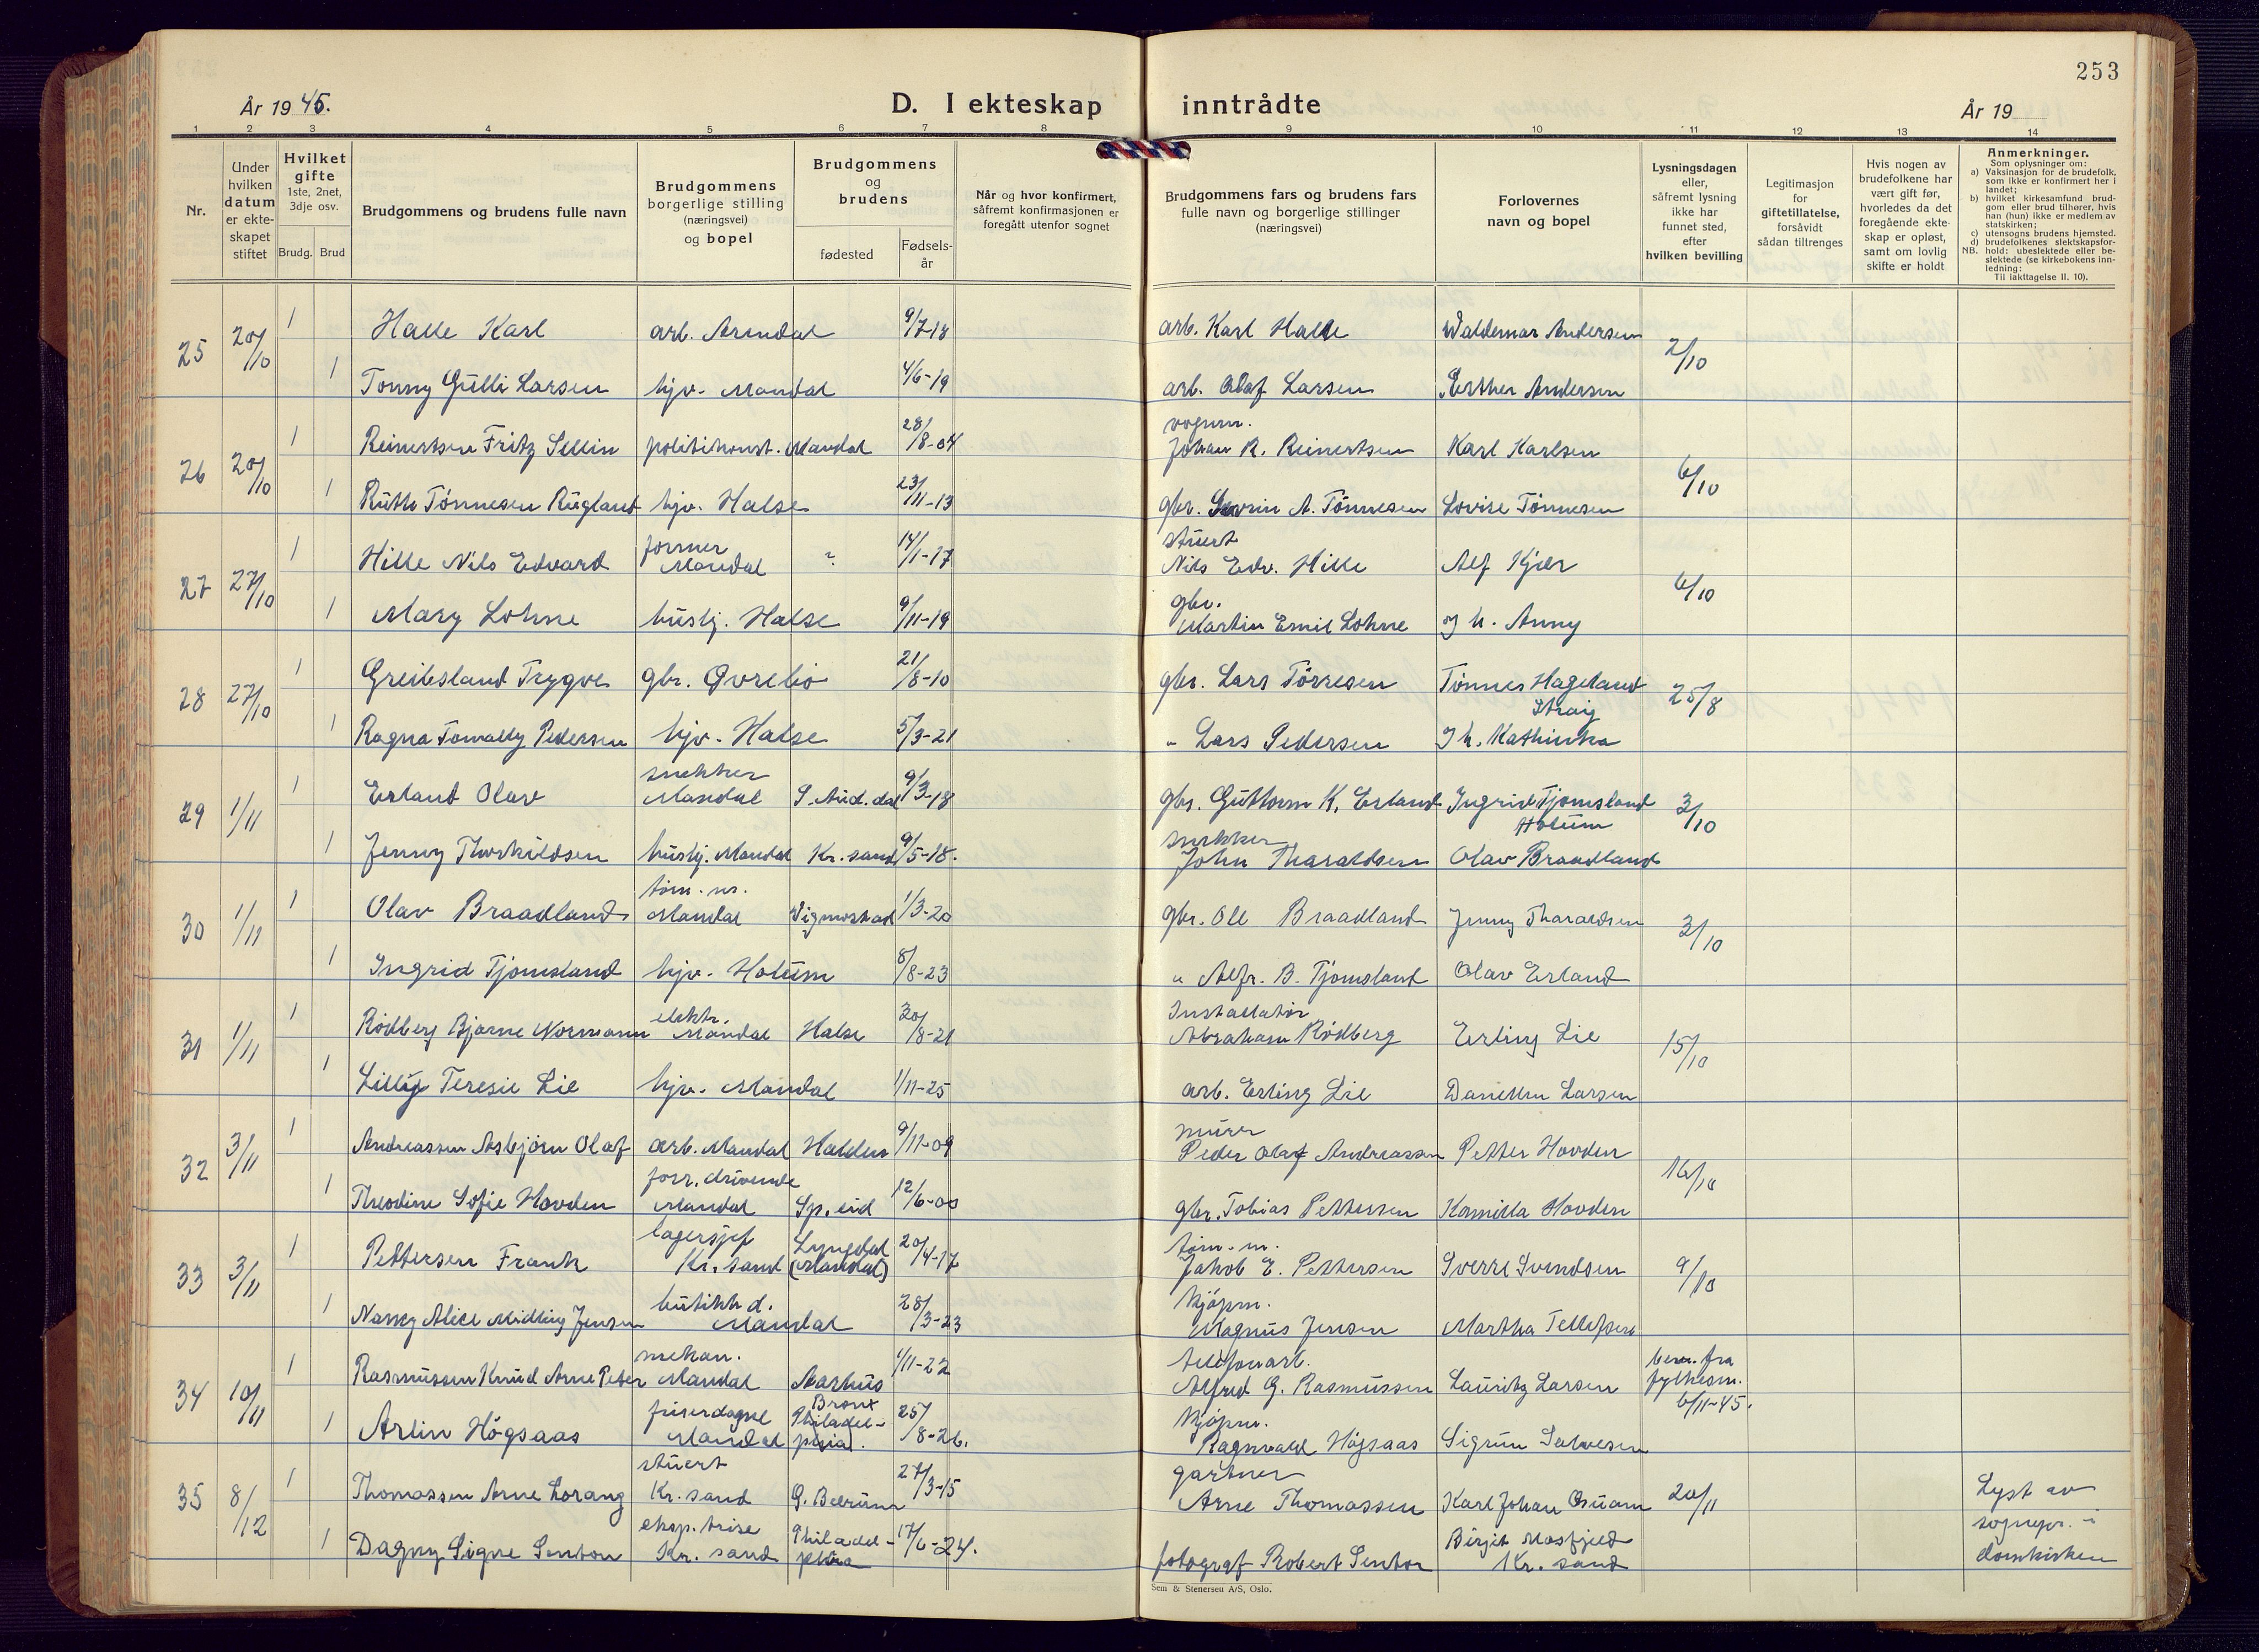 253
År 1945.
D. I ekteskap inntrådte
År 19
1 2 3 4 5 6 7 8 9 10 11 12 13 14
Nr.
Under hvilken datum er ekteskapet stiftet
Hvilket gifte 1ste, 2net, 3dje osv.
Brudg. Brud
Brudgommens og brudens fulle navn
Brudgommens borgerlige stilling (næringsvei) og bopel
Brudgommens og brudens
fødested
Fødsels-år
Når og hvor konfirmert, såfremt konfirmasjonen er foregått utenfor sognet
Brudgommens fars og brudens fars fulle navn og borgerlige stillinger (næringsvei)
Forlovernes navn og bopel
Lysningsdagen eller, såfremt lysning ikke har funnet sted, efter hvilken bevilling
Legitimasjon for giftetillatelse, forsåvidt sådan tiltrenges
Hvis nogen av brudefolkene har vært gift før, hvorledes da det foregående ekteskap er opløst, samt om lovlig skifte er holdt
Anmerkninger.
Som oplysninger om:
a) Vaksinasjon for de brudefolk, som ikke er konfirmert her i landet;
b) hvilket kirkesamfund brudgom eller brud tilhører, hvis han (hun) ikke er medlem av statskirken;
c) utensogns brudens hjemsted.
d) brudefolkenes slektskapsforhold: ubeslektede eller beslektede (se kirkebokens innledning:
NB. Til iakttagelse II. 10).
25 20/10 1 Halle Karl arb. Arendal 9/7-18 arb. Karl Halle Waldemar Andersen 2/10
1 Tonny Gulli Larsen hjv. Mandal 4/6-19 arb. Olaf Larsen Esther Andersen
26 20/10 1 Reinertsen Fritz Sellin politikonst. Mandal 28/8-04 vognm. Johan R. Reinertsen Karl Karlsen 6/10
1 Ruth Tönnesen Rugland hjv. Halse 23/11-13 gbr. Severin A. Tönnesen Lovise Tönnesen
27 27/10 1 Hille Nils Edvard former Mandal ? 14/1-17 stuert Nils Edv. Hille Alf Kjær 6/10
1 Mary Lohne hushj. Halse 9/11-19 gbr. Martin Emil Lohne og h. Anny
28 27/10 1 Greibesland Trygve gbr. Øvrebø 21/8-10 gbr. Lars Törresen Tönnes Hageland 25/8
1 Ragna Tomally Pedersen hjv. Halse 5/3-21 " Lars Pedersen og h. Kathinka
29 1/11 1 Erland Olav snekker Mandal S. Aud.dal 9/3-18 gbr. Guttorm K. Erland Ingrid Tjomsland Holum 3/10
1 Jenny Thorkildsen hushj. Mandal Kr. sand 9/5-18. snekker John Tharaldsen Olav Braadland
30 1/11 1 Olav Braadland töm. m. Mandal Vigmostad 1/3-20 gbr. Ole Braadland Jenny Tharaldsen 3/10
1 Ingrid Tjomsland hjv. Holum 8/8-23 " Alfr. B. Tjomsland Olav Erland
31 1/11 1 Rödberg Bjarne Normann elektr. Mandal Halse 30/8-21 Installatör Abraham Rödberg Erling Lie 15/10
1 Lilly Teresie Lie hjv. Mandal 1/11-25 arb. Erling Lie Daniellen Larsen
32 3/11 1 Andreassen Asbjörn Olaf arb. Mandal Halden 9/11-09 murer Peder Olaf Andreassen Petter Hovden 16/10
1 Theodine Sofie Hovden forr. drivende Mandal Sp. eid 12/6-00 gbr. Tobias Pettersen Kamilla Hovden
33 3/11 1 Pettersen Frank lagersjef Kr. sand Lyngdal (Mandal) 20/4-17 töm. m. Jakob E. Pettersen Sverre Svendsen 9/10
1 Nancy Alice Midling Jensen butikk d. Mandal 28/3-23 kjöpm. Magnus Jensen Martha Tellefsen
34 10/11 1 Rasmussen Knud Arne Peter mekan. Mandal Aarhus 1/11-22 telefonarb. Alfred G. Rasmussen Lauritz Larsen bem. fra fylkesm. 6/11-45.
1 Arlin Högsaas friserdame Mandal Bronx Philadelphia. 25/8-26. kjöpm. Ragnvald Högsaas Sigrun Salvesen
35 8/12 1 Thomassen Arne Lorang stuert Kr. sand G. Bærum 27/3-15 gartner Arne Thomassen Karl Johan Osuam 20/11 Lyst av sognepr. i domkirken
1 Dagny Signe Senton eksp. trise Kr. sand Philadelphia 17/6-24. fotograf Robert Senton Birgit Mosfjeld Kr. sand
Sem & Stenersen A/S, Oslo.